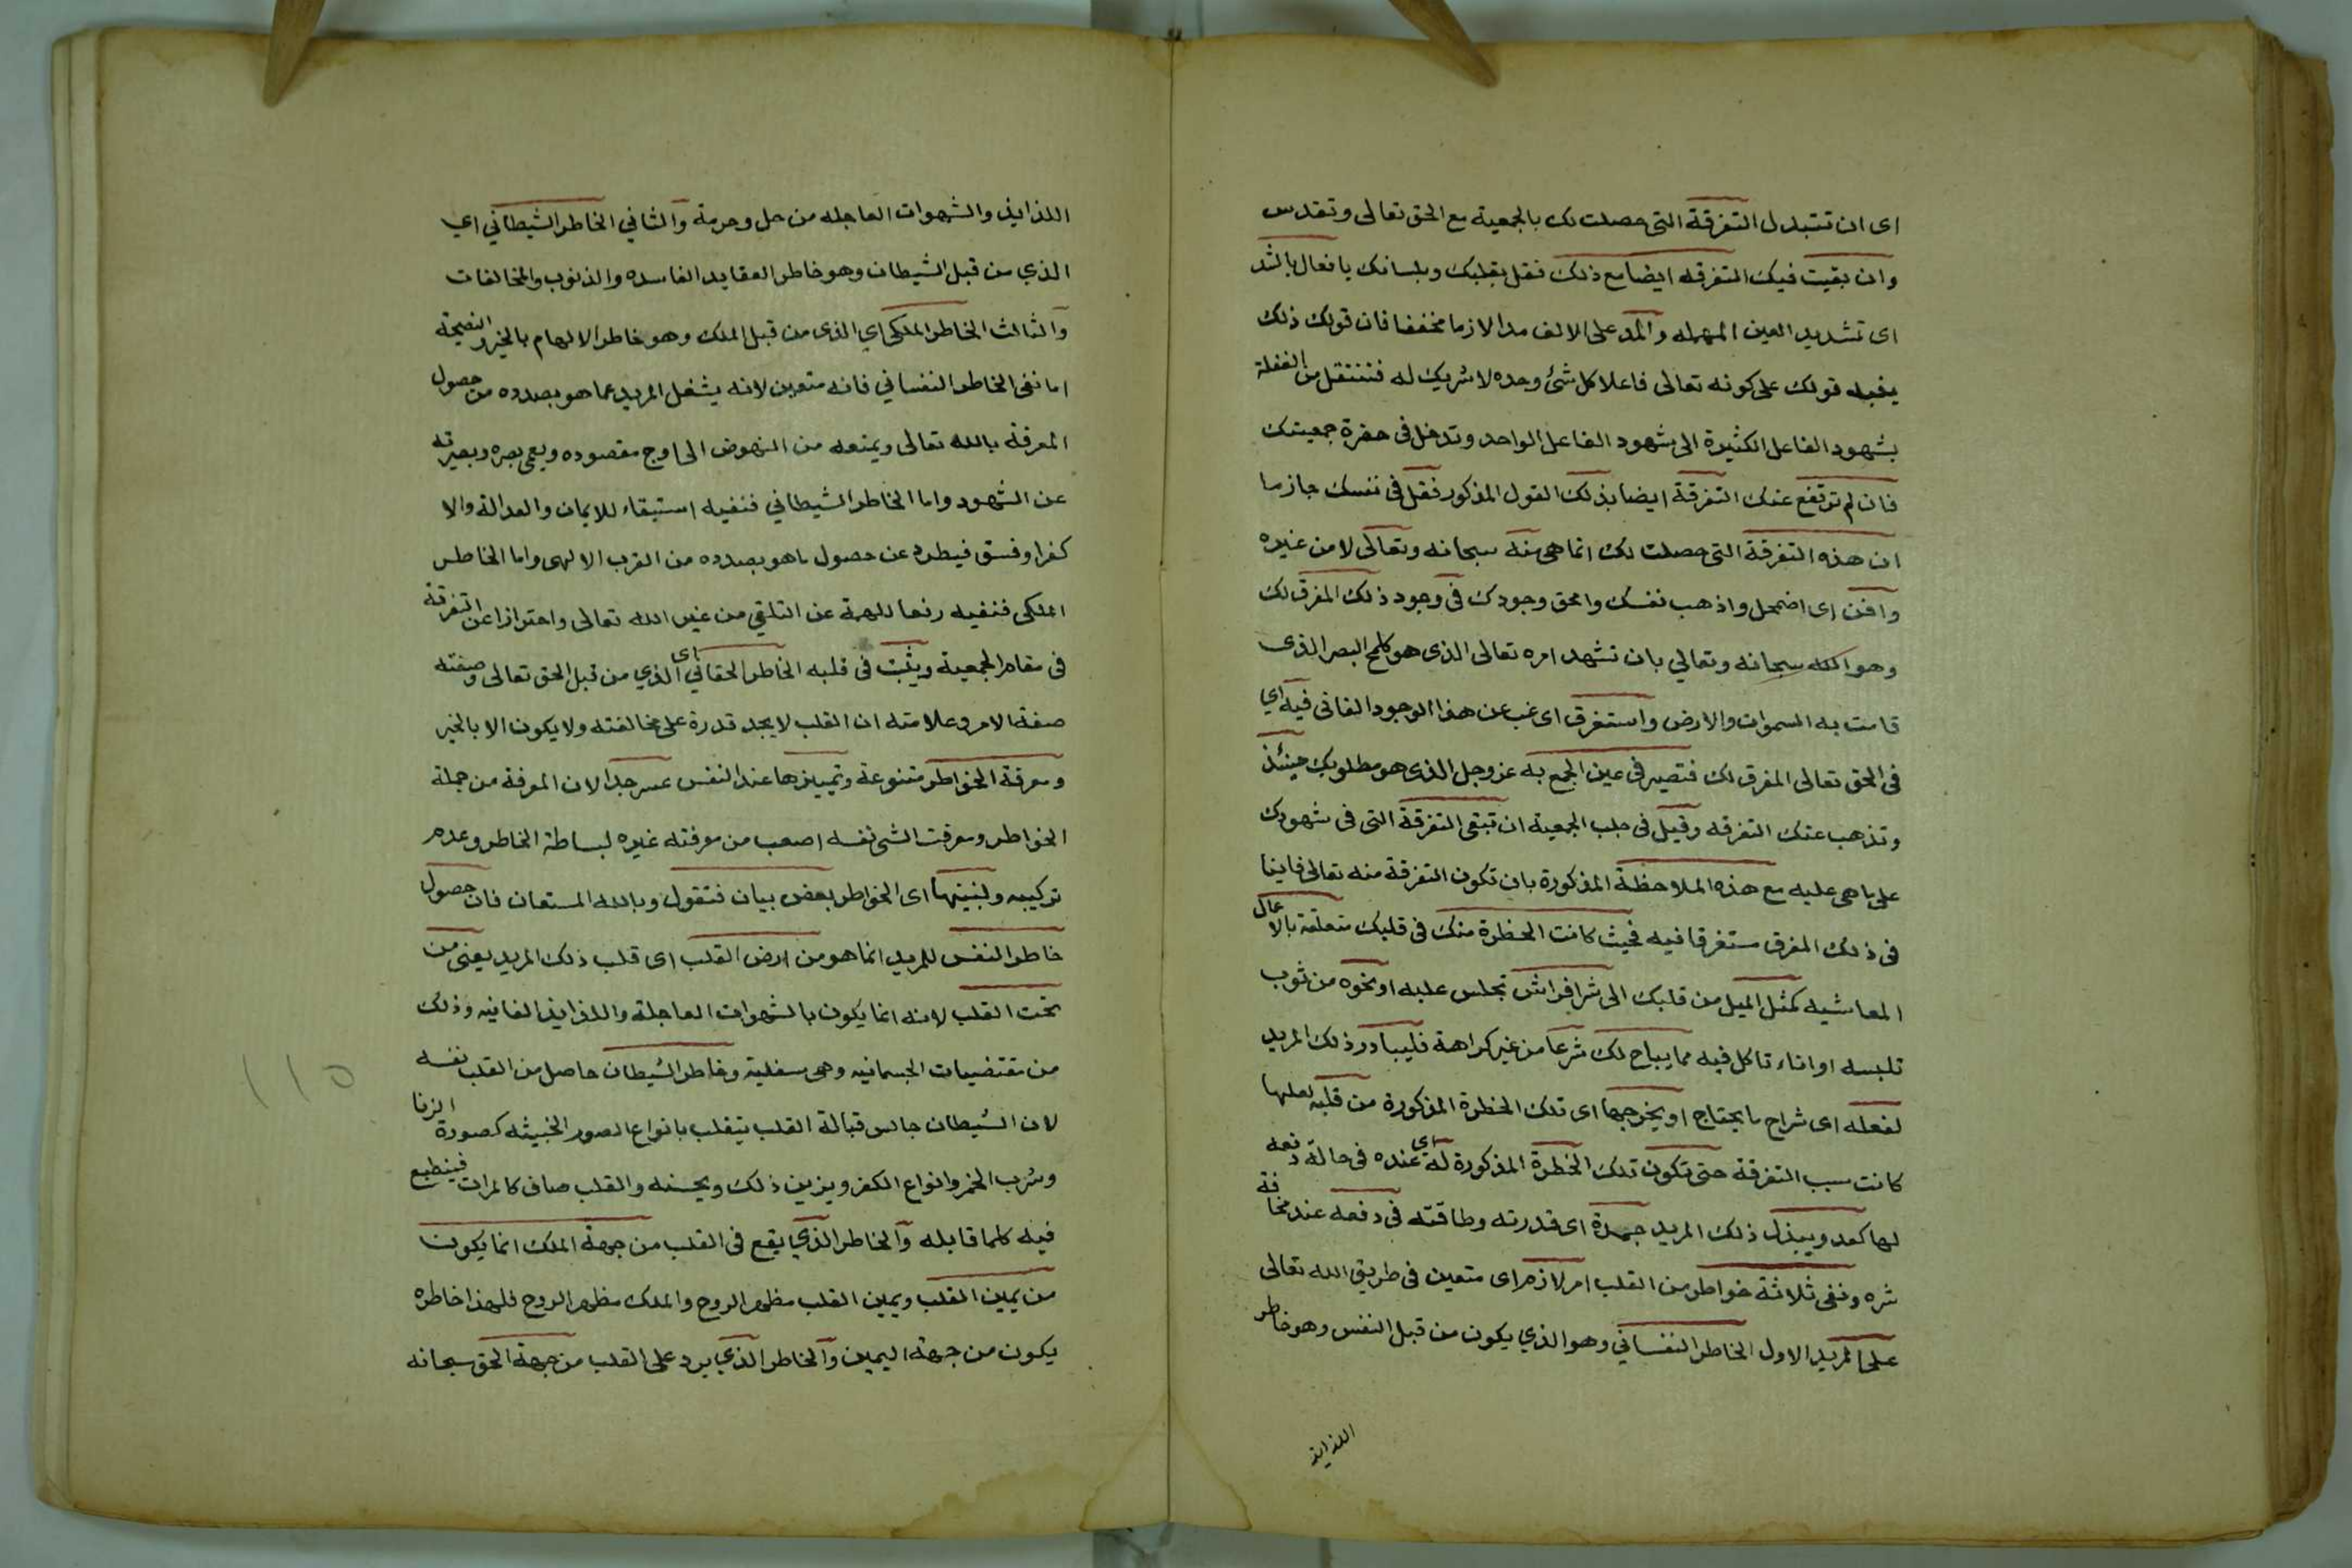 اى ان تتبدل التفرقة التى حصلت لك بالجمعية مع الحق تعالى وتقدس
وان بقيت فيك التفرقه ايضا مع ذلك فقل بقلبك وبلسانك يا فعال بالشد
اى تشديد العين المهمله والمد على الالف مدا لازما مخففا فان قولك ذلك
يفيد قولك على كونه تعالى فاعلا كل شئ وحده لا شريك له فتنتقل من الغفلة
بشهود الفاعل الكثيرة الى شهود الفاعل الواحد وتدخل فى حضرة جمعيتك
فان لم ترتفع عنك التفرقة ايضا بذلك القول المذكور فقل فى نفسك جازما
ان هذه التفرقة التى حصلت لك انما هى منه سبحانه وتعالى لا من غيره
وافن اى اضمحل واذهب نفسك وامحق وجودك فى وجود ذلك المفرق لك
وهو الله سبحانه وتعالي بان تشهد امره تعالى الذى هو كلمح البصر الذى
قامت به السموات والارض واستغرق اى غب عن هذا الوجود الفانى فيه اي
فى الحق تعالى المفرق لك فتصير فى عين الجمع به عز وجل الذى هو مطلوبك حينئذ
وتذهب عنك التفرقه وقيل فى جلب الجمعية ان تبقى التفرقة التى فى شهودك
على ما هى عليه مع هذه الملاحظة المذكورة بان تكون التفرقة منه تعالى فانيا
فى ذلك المفرق مستغرقا فيه فحيث كانت الخطرة منك فى قلبك متعلقة بالاعمال
المعاشيه كمثل الميل من قلبك الى شرا فراش تجلس عليه او نحوه من ثوب
تلبسه او اناء تاكل فيه مما يباح لك شرعا من غير كراهة فليبادر ذلك المريد
لفعله اى شراء ما يحتاج او يخرجها اى تلك الخطرة المذكورة من قلبه لعلها
كانت سبب التفرقة حتى تكون تلك الخطرة المذكورة له اى عنده فى حالة دفعه
لها كعدو يبذل ذلك المريد جهده اى قدرته وطاقته فى دفعه عند مخافة
شره ونفى ثلاثة خواطر من القلب امر لازم اى متعين فى طريق الله تعالى
على المريد الاول الخاطر النفساني وهو الذي يكون من قبل النفس وهو خاطر
اللذايذ
اللذايذ والشهوات العاجله من حل وحرمة والثاني الخاطر الشيطاني اي
الذي من قبل الشيطان وهو خاطر العقايد الفاسده والذنوب والمخالفات
والثالث الخاطر الملكى اي الذى من قبل الملك وهو خاطر الالهام بالخير والنصيحة
اما نفى الخاطر النفساني فانه متعين لانه يشغل المريد عما هو بصدده من حصول
المعرفة بالله تعالى ويمنعه من النهوض الى اوج مقصوده ويعمى بصره وبصيرته
عن الشهود واما الخاطر الشيطاني فنفيه استبقاء للايمان والعدالة والا
كفر او فسق فيطرد عن حصول ما هو بصدده من القرب الالهى واما الخاطر
الملكى فنفيه رفعا للهمة عن التلقي من غير الله تعالى واحترازا عن التفرقة
فى مقام الجمعية ويثبت فى قلبه الخاطر الحقاني اى الذي من قبل الحق تعالى وصفته
صفة الامر وعلامته ان القلب لا يجد قدرة على مخالفته ولا يكون الا بالخير
ومعرفة الخواطر متنوعة وتمييزها عند النفس عسر جدا لان المعرفة من جملة
الخواطر ومعرفت الشى نفسه اصعب من معرفته غيره لبساطة الخاطر وعدم
تركيبه ولنبينها اى الخواطر بعض بيان فنقول وبالله المستعان فان حصول
خاطر النفس للمريد انما هو من ارض القلب اى قلب ذلك المريد يعنى من
تحت القلب لانه انما يكون بالشهوات العاجلة واللذايذ الفانيه وذلك
من مقتضيات الجسمانيه وهى سفلية وخاطر الشيطان حاصل من القلب نفسه
لان الشيطان جالس قبالة القلب يتقلب بانواع الصور الخبيثه كصورة الزنا
وشرب الخمر وانواع الكفر ويزين ذلك ويحسنه والقلب صاف كالمرات فينطبع
فيه كلما قابله والخاطر الذي يقع فى القلب من جهة الملك انما يكون
من يمين القلب ويمين القلب مظهر الروح والملك مظهر الروح فلهذا خاطره
يكون من جهة اليمين والخاطر الذي يرد على القلب من جهة الحق سبحانه
١١٥